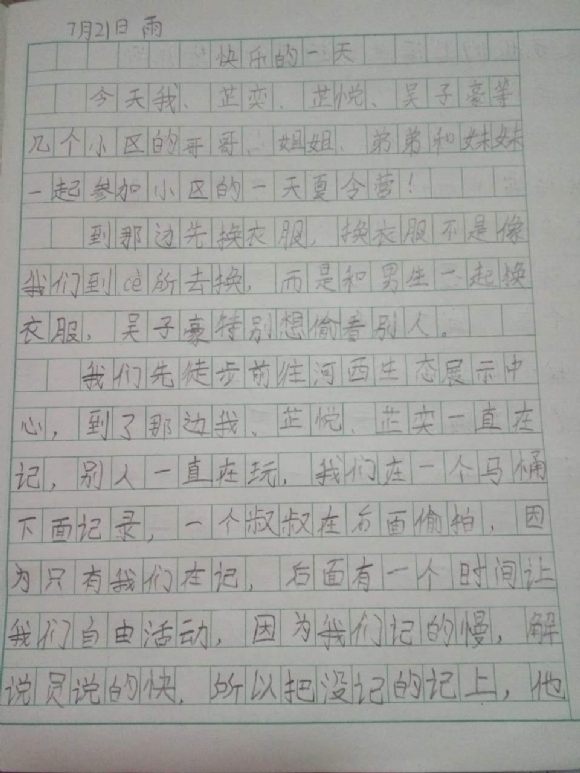 7月21日 雨
快乐的一天
今天我、芷奕、芷悦、吴子豪等
几个小区的哥哥、姐姐、弟弟和妹妹
一起参加小区的一天夏令营!
到那边先换衣服,换衣服不是像
我们到cè所去换,而是和男生一起换
衣服,吴子豪特别想偷看别人。
我们先徒步前往河西生态展示中
心,到了那边我、芷悦、芷奕一直在
记,别人一直在玩,我们在一个马桶
下面记录,一个叔叔在后面偷拍,因
为只有我们在记,后面有一个时间让
我们自由活动,因为我们记的慢,解
说员说的快,所以把没记的记上,他